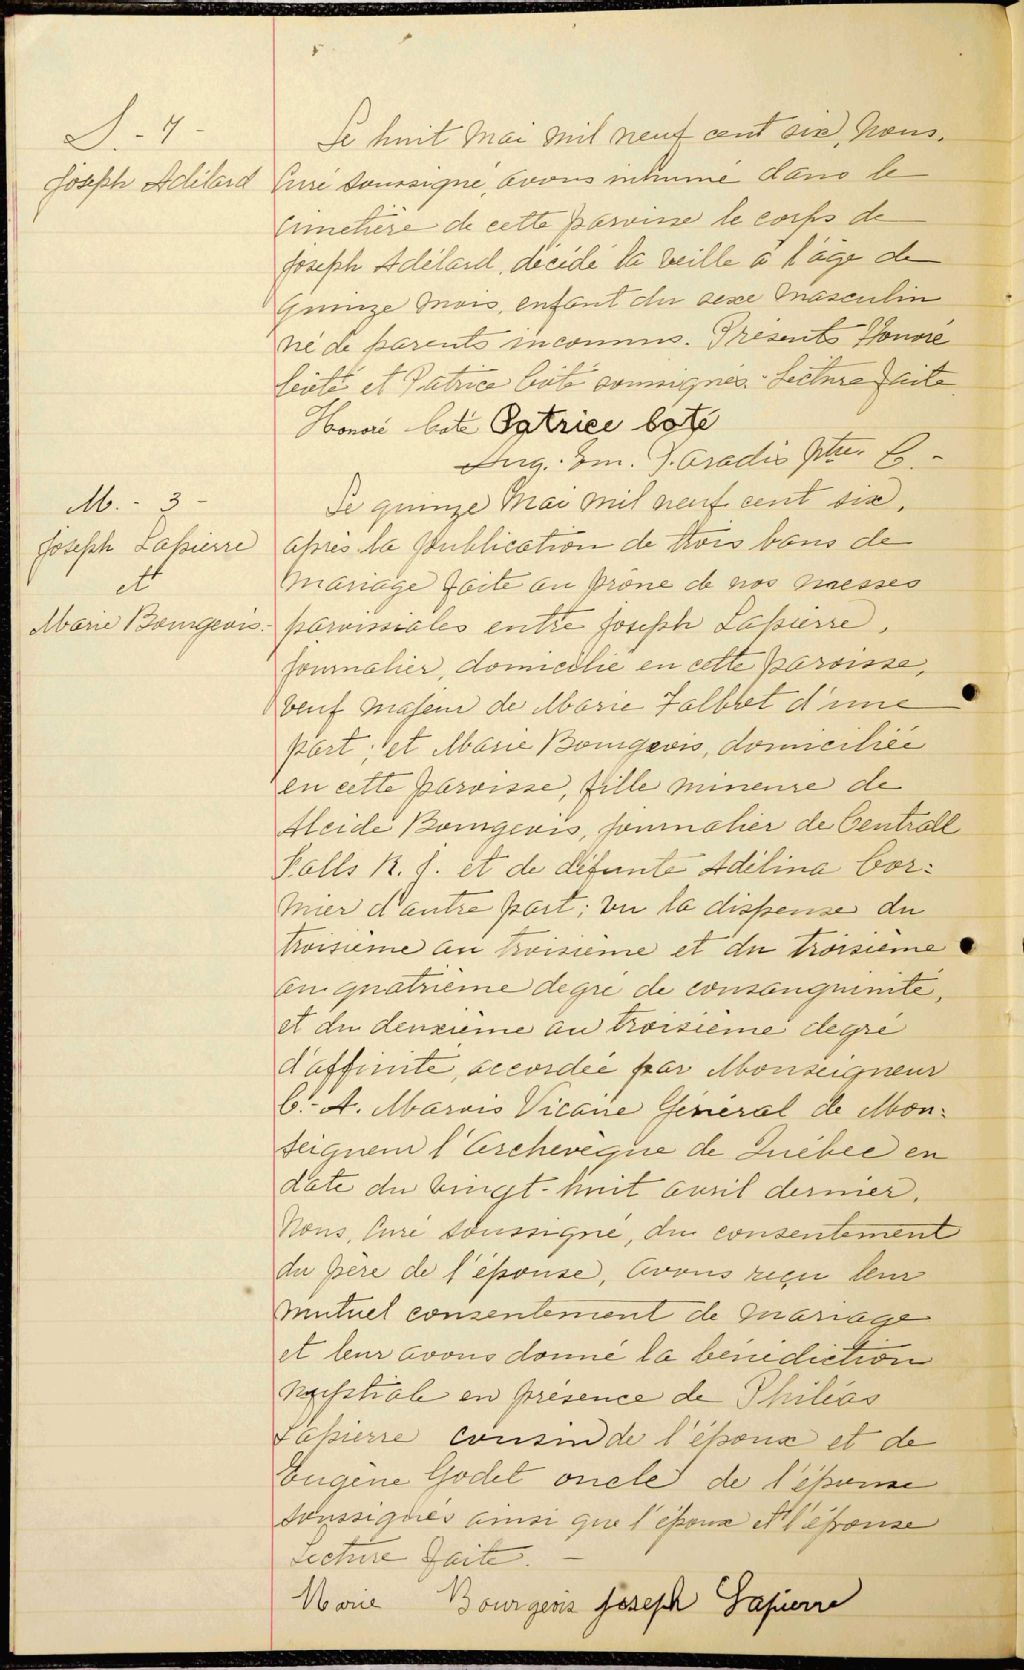 S. - 7 -
Joseph Adélard
Le huit Mai mil neuf cent six, Nous,
Curé soussigné, avons inhumé dans le
cimetière de cette paroisse le corps de
Joseph Adélard, décédé la veille à l'âge de
quinze mois, enfant du sexe masculin
né de parents inconnus. Présents Honoré
Côté et Patrice Côté soussignés. Lecture faite
Honoré Coté Patrice Coté
Aug. Em. Paradis ptre. C. -
M. - 3 -
Joseph Lapierre
et
Marie Bourgeois. -
Le quinze Mai mil neuf cent six,
après la publication de trois bans de
mariage faite au prône de nos messes
paroissiales entre Joseph Lapierre,
journalier, domicilié en cette paroisse,
veuf majeur de Marie Talbot d'une
part; et Marie Bourgeois, domiciliée
en cette paroisse, fille mineure de
Alcide Bourgeois, journalier de Centrall
Falls R. J. et de défunte Adélina Cor=
mier d'autre part; vu la dispense du
troisième au troisième et du troisième
au quatrième degré de consanguinité,
et du deuxième au troisième degré
d'affinité, accordée par Monseigneur
C.-A. Marois Vicaire Général de Mon=
seigneur l'Archevêque de Québec en
date du vingt-huit avril dernier.
Nous, Curé soussigné, du consentement
du père de l'épouse, avons reçu leur
mutuel consentement de mariage
et leur avons donné la bénédiction
nuptiale en présence de Philéas
Lapierre cousin de l'époux et de
Eugène Godet oncle de l'épouse
soussignés ainsi que l'époux et l'épouse
Lecture faite. -
Marie Bourgeois Joseph Lapierre